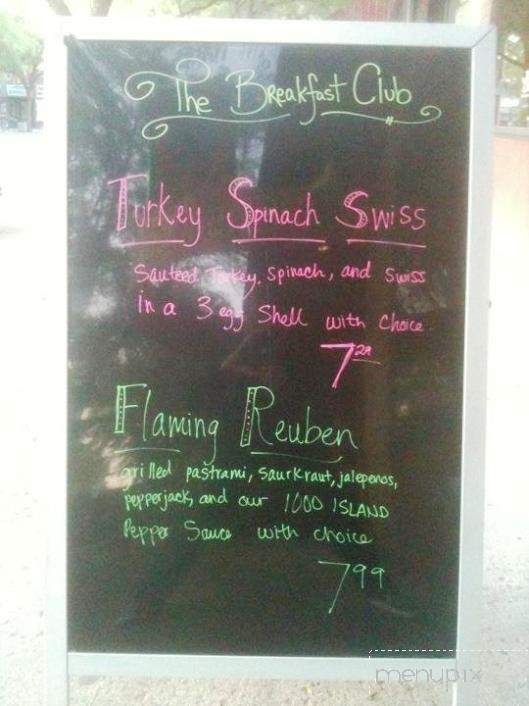 The Breakfast Club
Turkey Spinach Swiss
Sauteed Turkey, spinach, and swiss
in a 3 egg shell with choice.
7.29
Flaming Reuben
grilled pastrami, saurkraut, jalepenos,
pepperjack, and our 1000 ISLAND
Pepper Sauce with choice
7.99
menupix